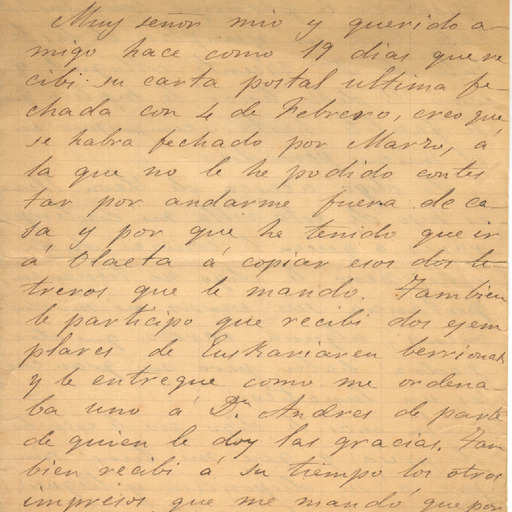 Muy señor mio y querido a-
migo hace como 19 dias que re
cibi su carta postal ultima fe-
chada con 4 de Febrero, creo que
se habra fechado por Marzo, á
la que no le he podido contes
tar por andarme fuera de ca-
sa y por que he tenido que ir
á Olaeta á copiar esos dos le-
treros que le mando. Tambien
le participo que recibi dos ejem
plares de Euskariaren berrionak
y le entregue como me ordena-
ba uno á Dn Andres de parte
de quien le doy las gracias. Tam
bien recibi á su tiempo los otros
impresos que me mandó que por